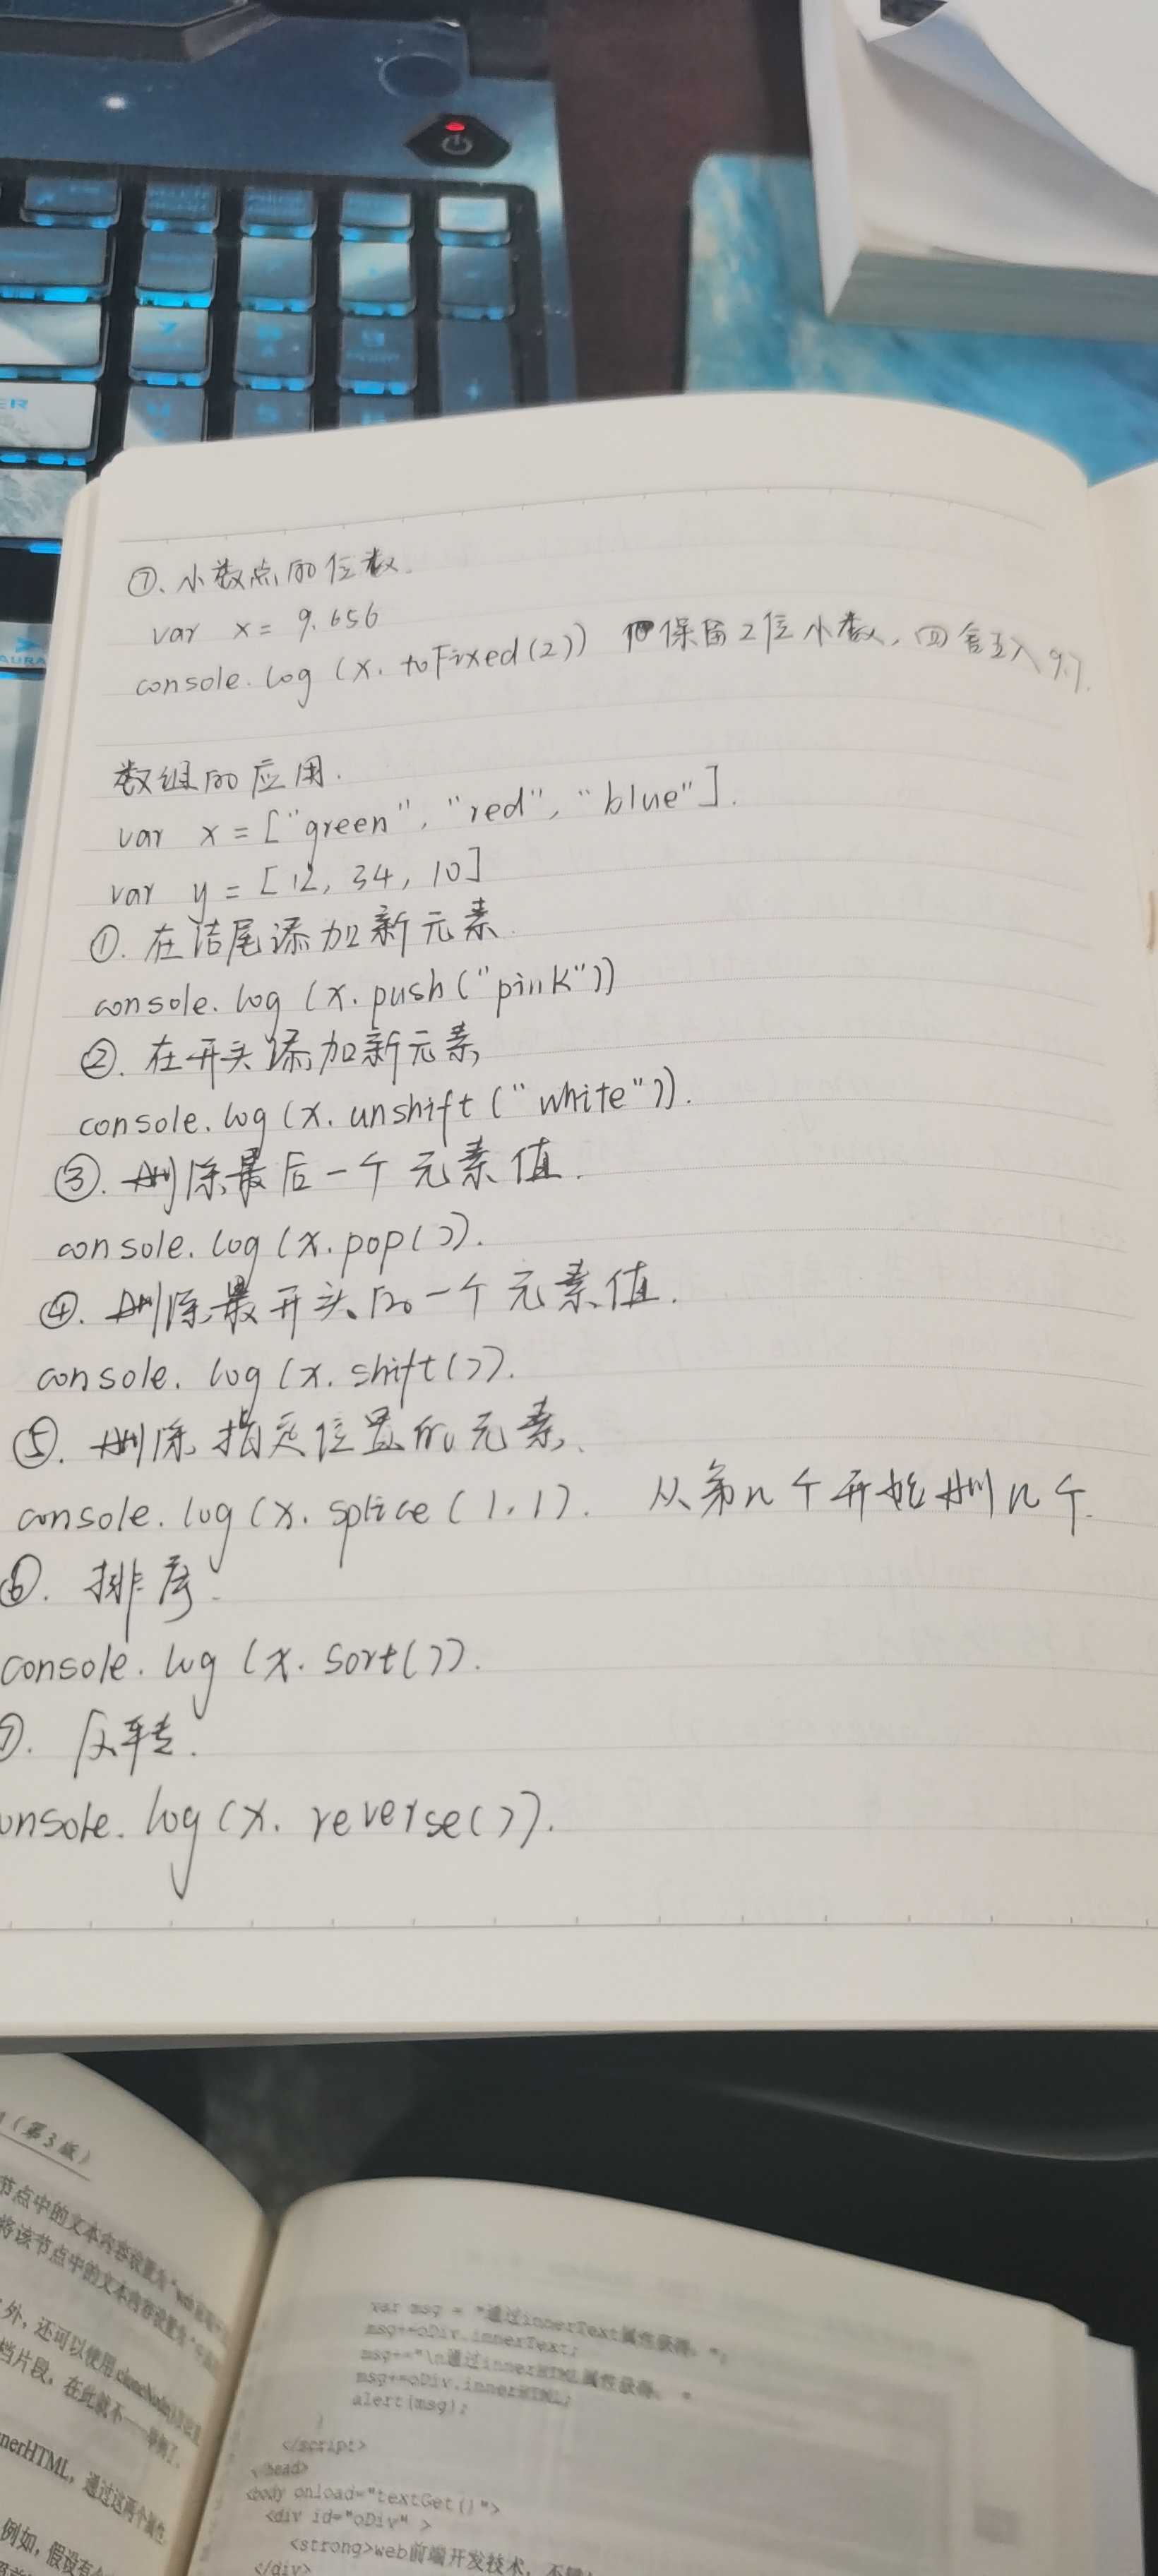 ER
AURA
⑦. 小数点的位数.
var x = 9.656
console.log (x. toFixed(2)) 保留2位小数, 四舍五入 9.7.
数组的应用.
var x = ["green", "red", "blue"].
var y = [12, 34, 10]
①. 在结尾添加新元素.
console.log (x.push("pink"))
②. 在开头添加新元素
console.log (x. unshift ("white")).
③. 删除最后一个元素值.
console.log (x.pop()).
④. 删除最开头的一个元素值.
console.log (x. shift()).
⑤. 删除指定位置的元素.
console.log (x. splice (1,1). 从第n个开始删n个.
⑥. 排序.
console.log (x. sort()).
⑦. 反转.
onsole.log (x. reverse()).
(第3版)
节点中的文本内容设置为"web
将该节点中的文本内容设置为
外，还可以使用
档片段，在此就不一一举例了。
nerHTML，通过这两个属性
例如，假设有
var msg = "通过innerText属性获得。";
msg+=oDiv.innerText;
msg+="\n通过innerHTML属性获得。"
msg+=oDiv.innerHTML;
alert(msg);
}
</script>
</head>
<body onload="textGet()">
<div id="oDiv" >
<strong>web前端开发技术，
</div>